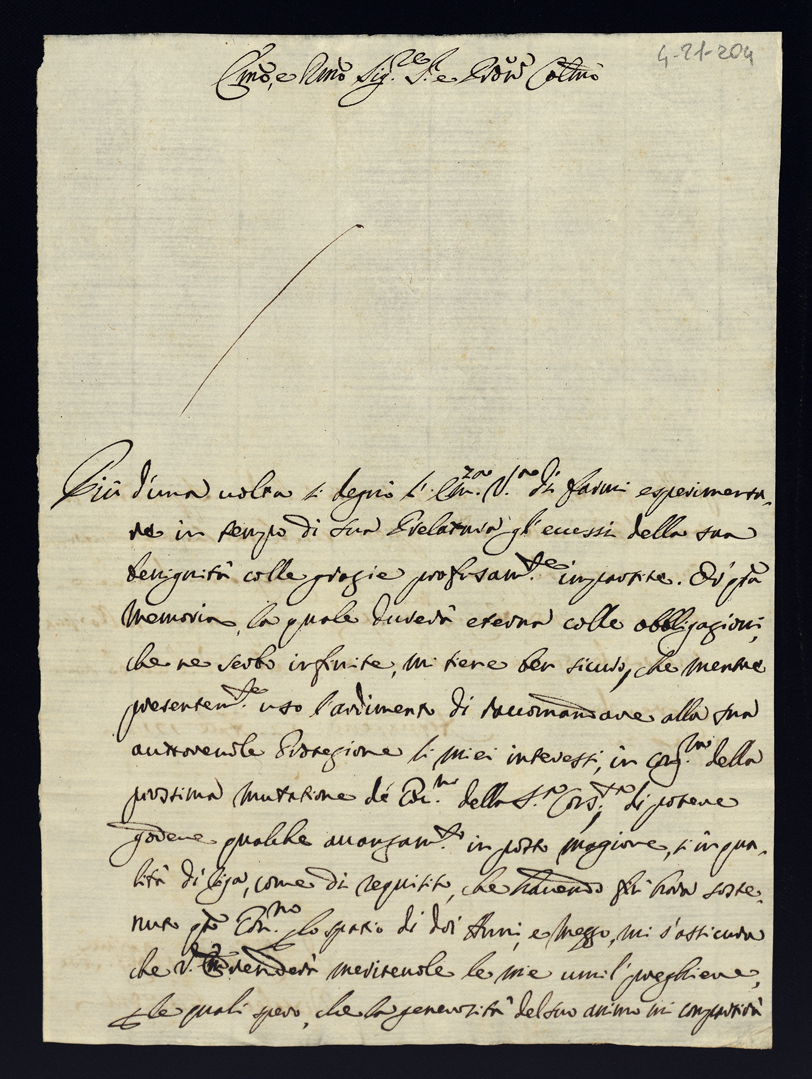 4-21-204
Emo, e Rmo Sig.re S.r e Pron Colmo
Più d'una volta si degnò l'Em.za V.ra di farmi esperimenta,
re in tempo di sua Prelatura gl'eccessi della sua
benignità colle grazie profusam.te impartite. Di q̃sta
memoria, la quale durerà eterna colle obbligazioni,
che ne serbo infinite, mi tiene ben sicuro, che mentre
presentem.te uso l'ardimento di raccomandare alla sua
auttorevole Protezione li miei interessi, in cong.ni della
prossima mutatione de Gov.ni della S.ra Cons.ta di potere
godere qualche avanzam.to in posto magiore, sì in qua,
lità di come di requisito, che havendo fin hora soste,
nuto q̃sto Gov.no lo spatio di doi Anni, e mezzo, mi s'assicura
che V. Em. renderà meritevole le mie umil' preghiere,
le quali spero, che la generosità del suo animo mi compartirà